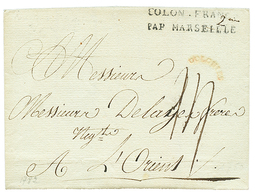 COLON. FRAN
PAR MARSEILLE
Messieurs
Messieurs Delaye frère
Negts
A L'Orient